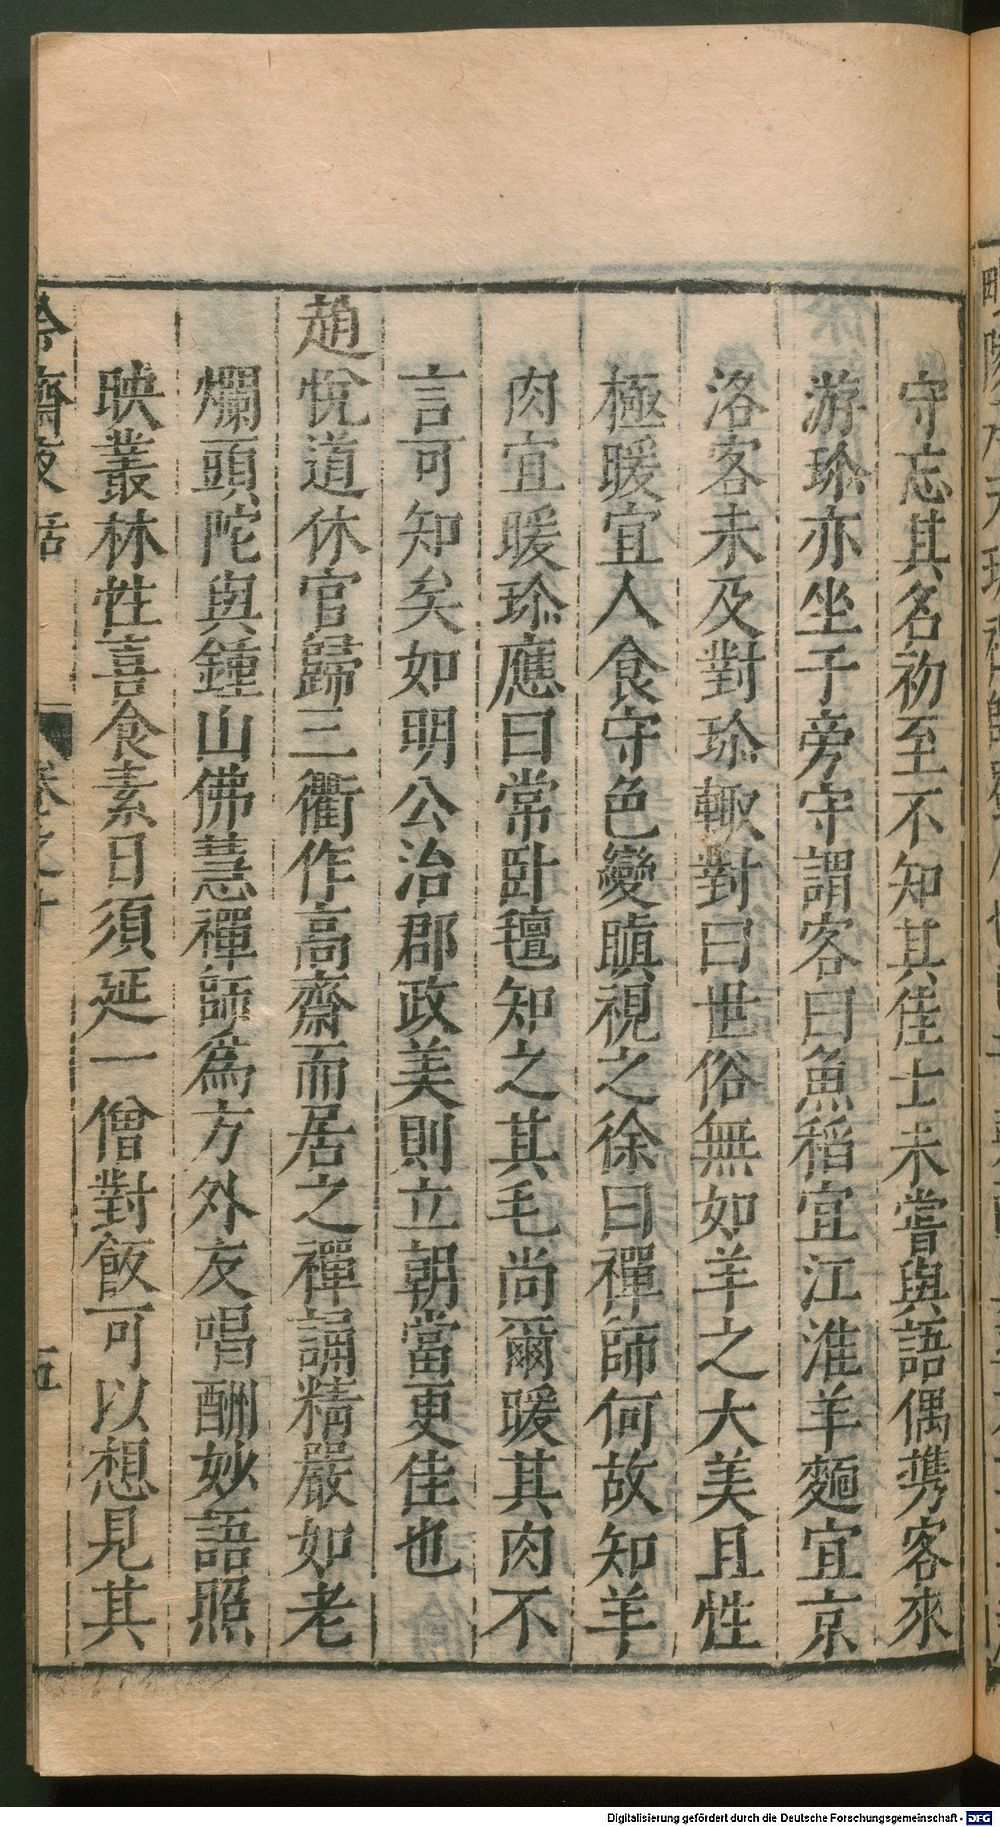 守忘其名初至不知其佳士未嘗與語偶攜客來
游珎亦坐于旁守謂客曰魚稻宜江淮羊麵宜京
洛客未及對珎輙對曰世俗無如羊之大美且性
極暖宜人食守色變瞋視之徐曰禪師何故知羊
肉宜暖珎應曰常卧氊知之其毛尚爾暖其肉不
言可知矣如明公治郡政美則立朝當更佳也
趙悅道休官歸三衢作高齋而居之禪誦精嚴如老
爛頭陀與鍾山佛慧禪師爲方外友唱酬妙語照
映叢林性喜食素日須延一僧對飯可以想見其
冷齋夜話
卷之十
五
Digitalisierung gefördert durch die Deutsche Forschungsgemeinschaft - DFG